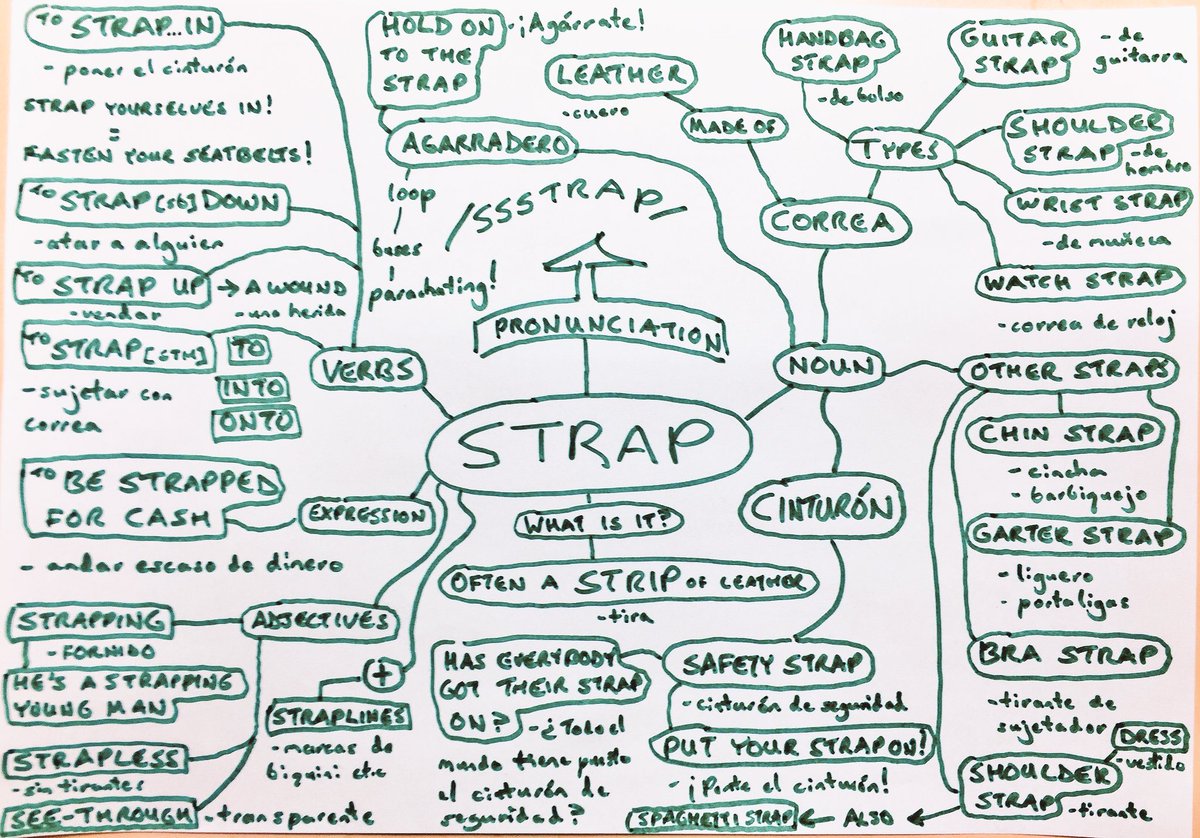 TO STRAP...IN
- poner el cinturón
STRAP YOURSELVES IN!
=
FASTEN YOUR SEATBELTS!
TO STRAP [sb] DOWN
- atar a alguien
TO STRAP UP → A WOUND
- vendar
- una herida
TO STRAP [STH] TO
INTO
ONTO
- sujetar con
correa
VERBS
HOLD ON
TO THE
STRAP
- ¡Agárrate!
AGARRADERO
loop
buses
parachuting!
LEATHER
- cuero
MADE OF
/SSSTRAP/
PRONUNCIATION
HANDBAG
STRAP
- de bolso
GUITAR
STRAP
- de
guitarra
TYPES
SHOULDER
STRAP
- de
hombro
WRIST STRAP
- de muñeca
WATCH STRAP
- correa de reloj
CORREA
NOUN
OTHER STRAPS
CHIN STRAP
- cincha
- barbiquejo
GARTER STRAP
- liguero
- portaligas
BRA STRAP
- tirante de
sujetador
DRESS
- vestido
SHOULDER
STRAP
- tirante
ALSO
SPAGHETTI STRAP
STRAP
WHAT IS IT?
OFTEN A STRIP OF LEATHER
- tira
CINTURÓN
SAFETY STRAP
- cinturón de seguridad
PUT YOUR STRAP ON!
- ¡Ponte el cinturón!
HAS EVERYBODY
GOT THEIR STRAP
ON?
- ¿Todo el
mundo tiene puesto
el cinturón de
seguridad?
EXPRESSION
TO BE STRAPPED
FOR CASH
- andar escaso de dinero
ADJECTIVES
STRAPPING
- FORNIDO
HE'S A STRAPPING
YOUNG MAN
STRAPLESS
- sin tirantes
SEE-THROUGH
- transparente
+
STRAPLINES
- marcas de
biquini etc